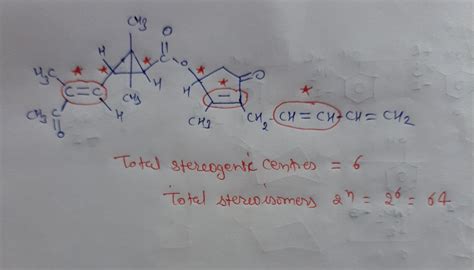 CH3
H3C O O
H H C O
C=C CH3 H
C H CH3 CH2-CH=CH-CH=CH2
O
Total stereogenic centres = 6
Total stereoisomers 2^n = 2^6 = 64